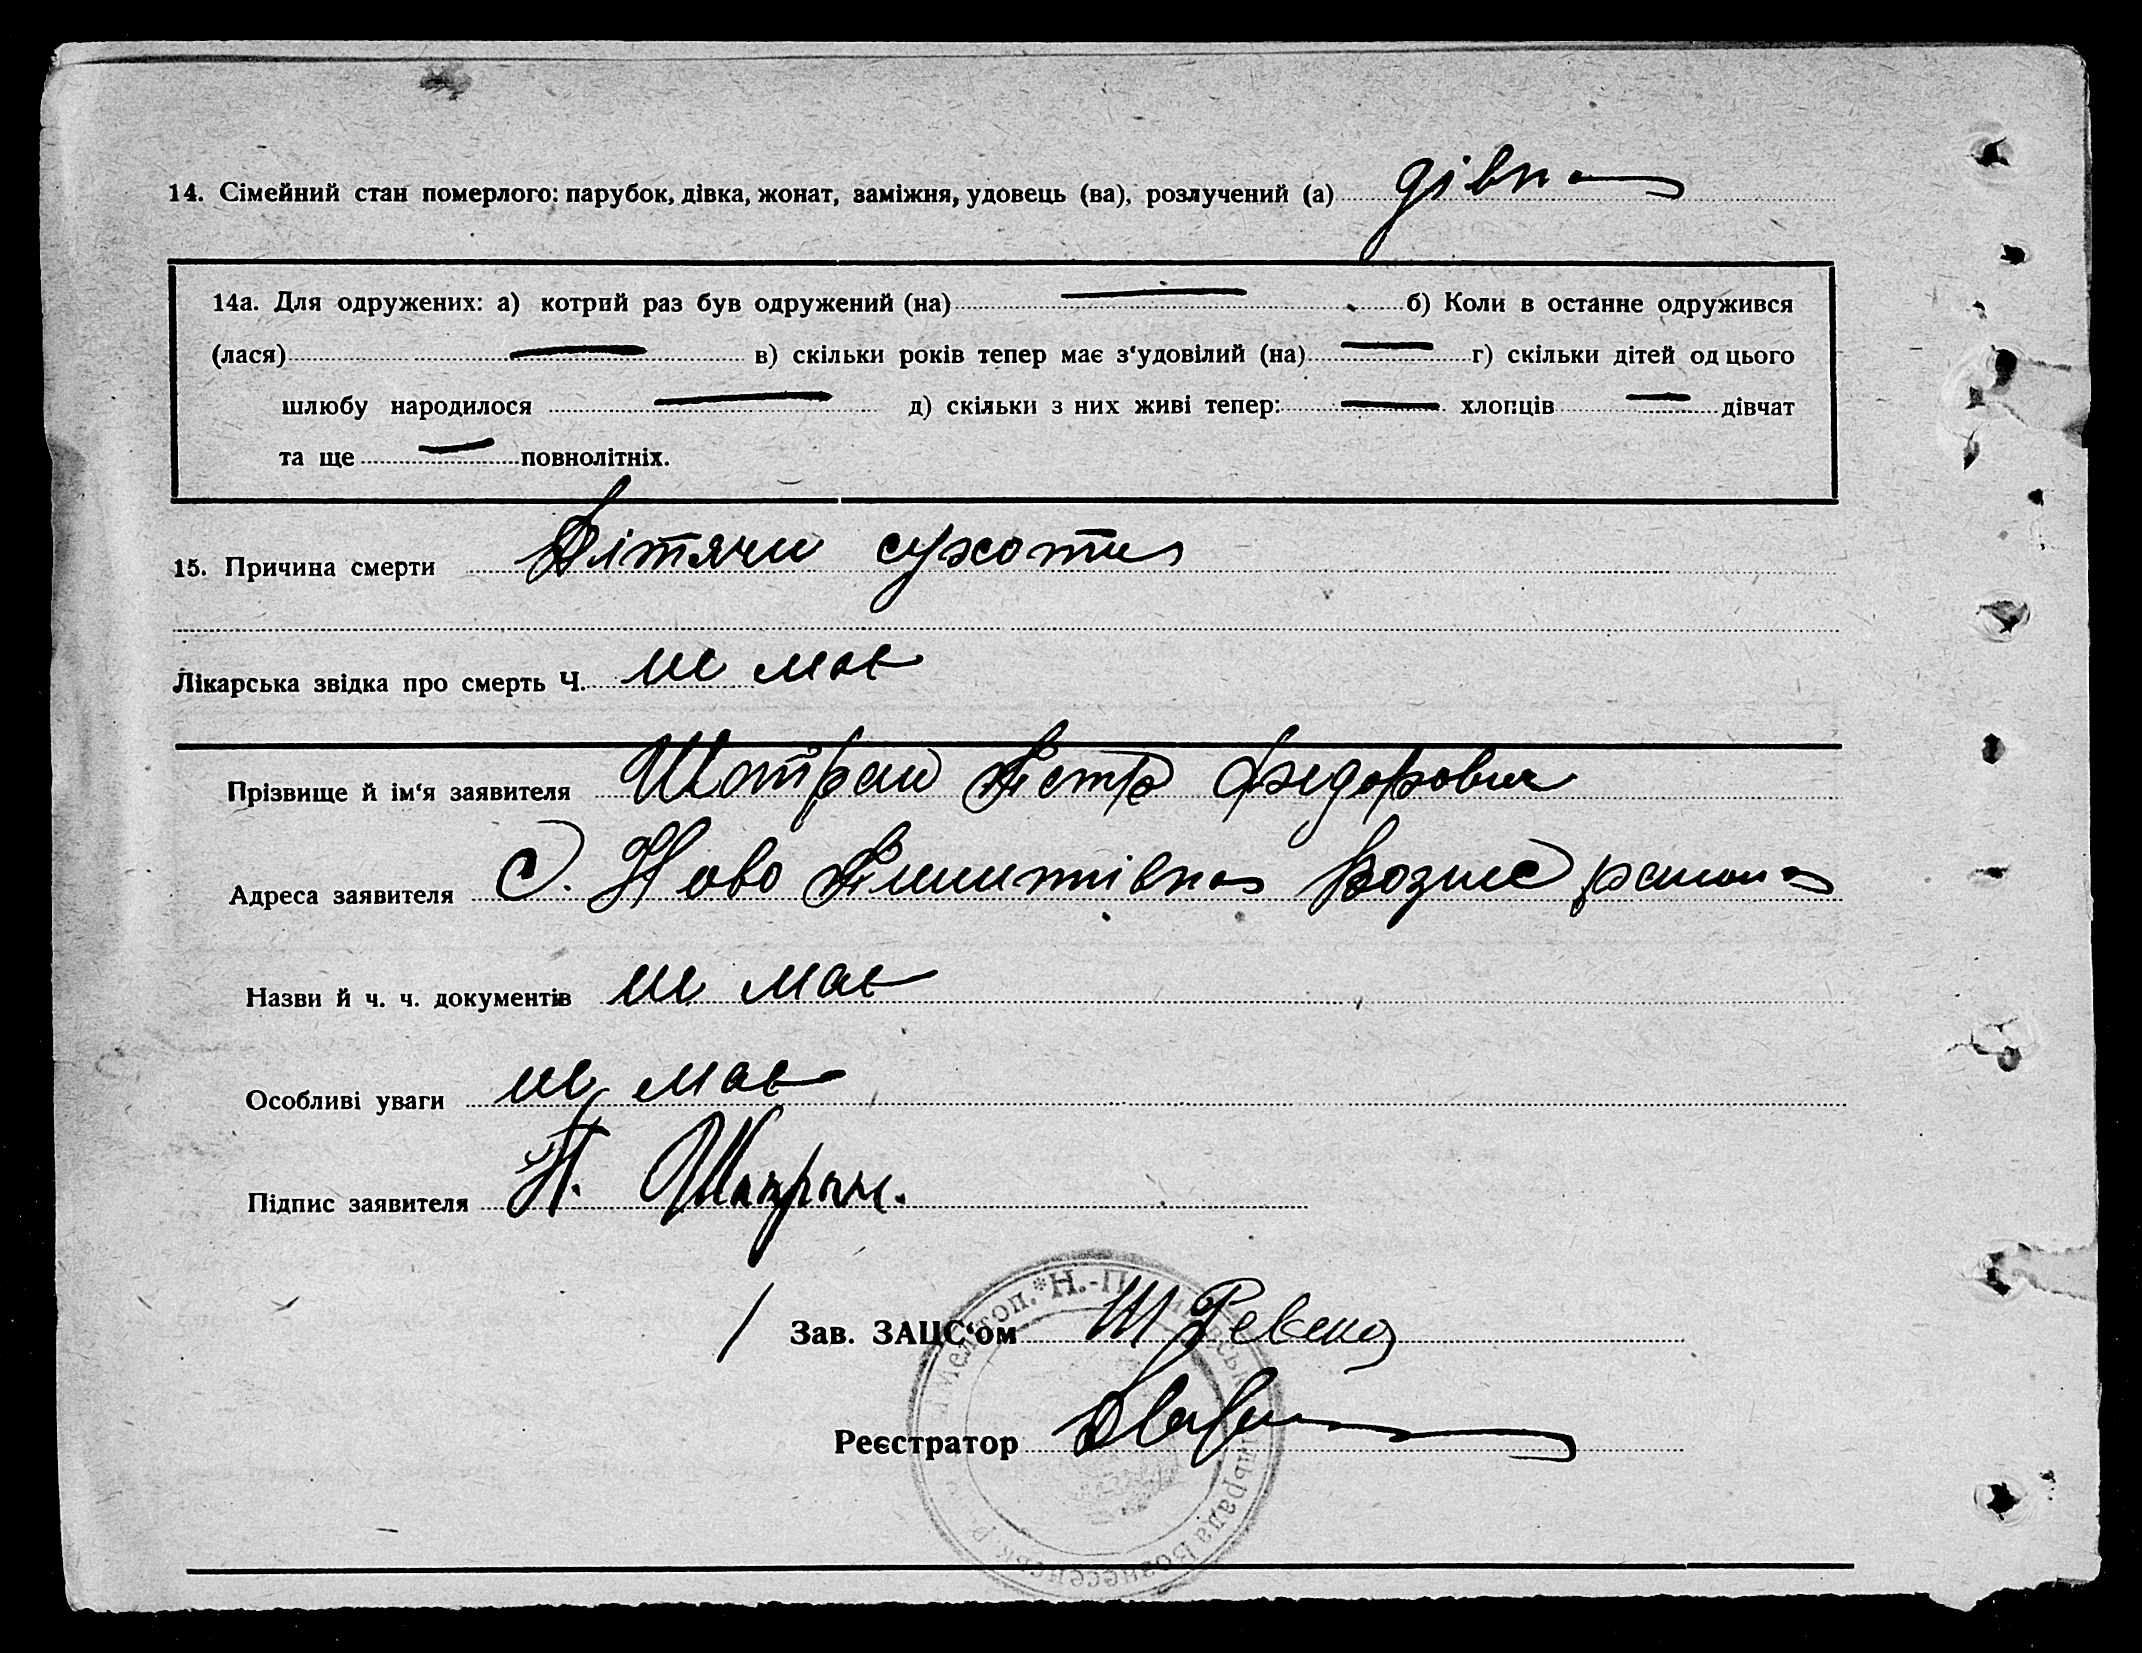 14. Сімейний стан померлого: парубок, дівка, жонат, заміжня, удовець (ва), розлучений (а) дівка
14а. Для одружених: а) котрий раз був одружений (на) — б) Коли в останне одружився
(лася) — в) скільки років тепер має з‘удовілий (на) — г) скільки дітей од цього
шлюбу народилося — д) скільки з них живі тепер: — хлопців — дівчат
та ще — повнолітніх.
15. Причина смерти Дітячи сухоти
Лікарська звідка про смерть Ч. не має
Прізвище й ім‘я заявителя Петро Федорович
Адреса заявителя С. Ново Пилипівка Возне района
Назви й ч. ч. документів не має
Особливі уваги не має
Підпис заявителя П.
Зав. ЗАЦС‘ом
Реєстратор